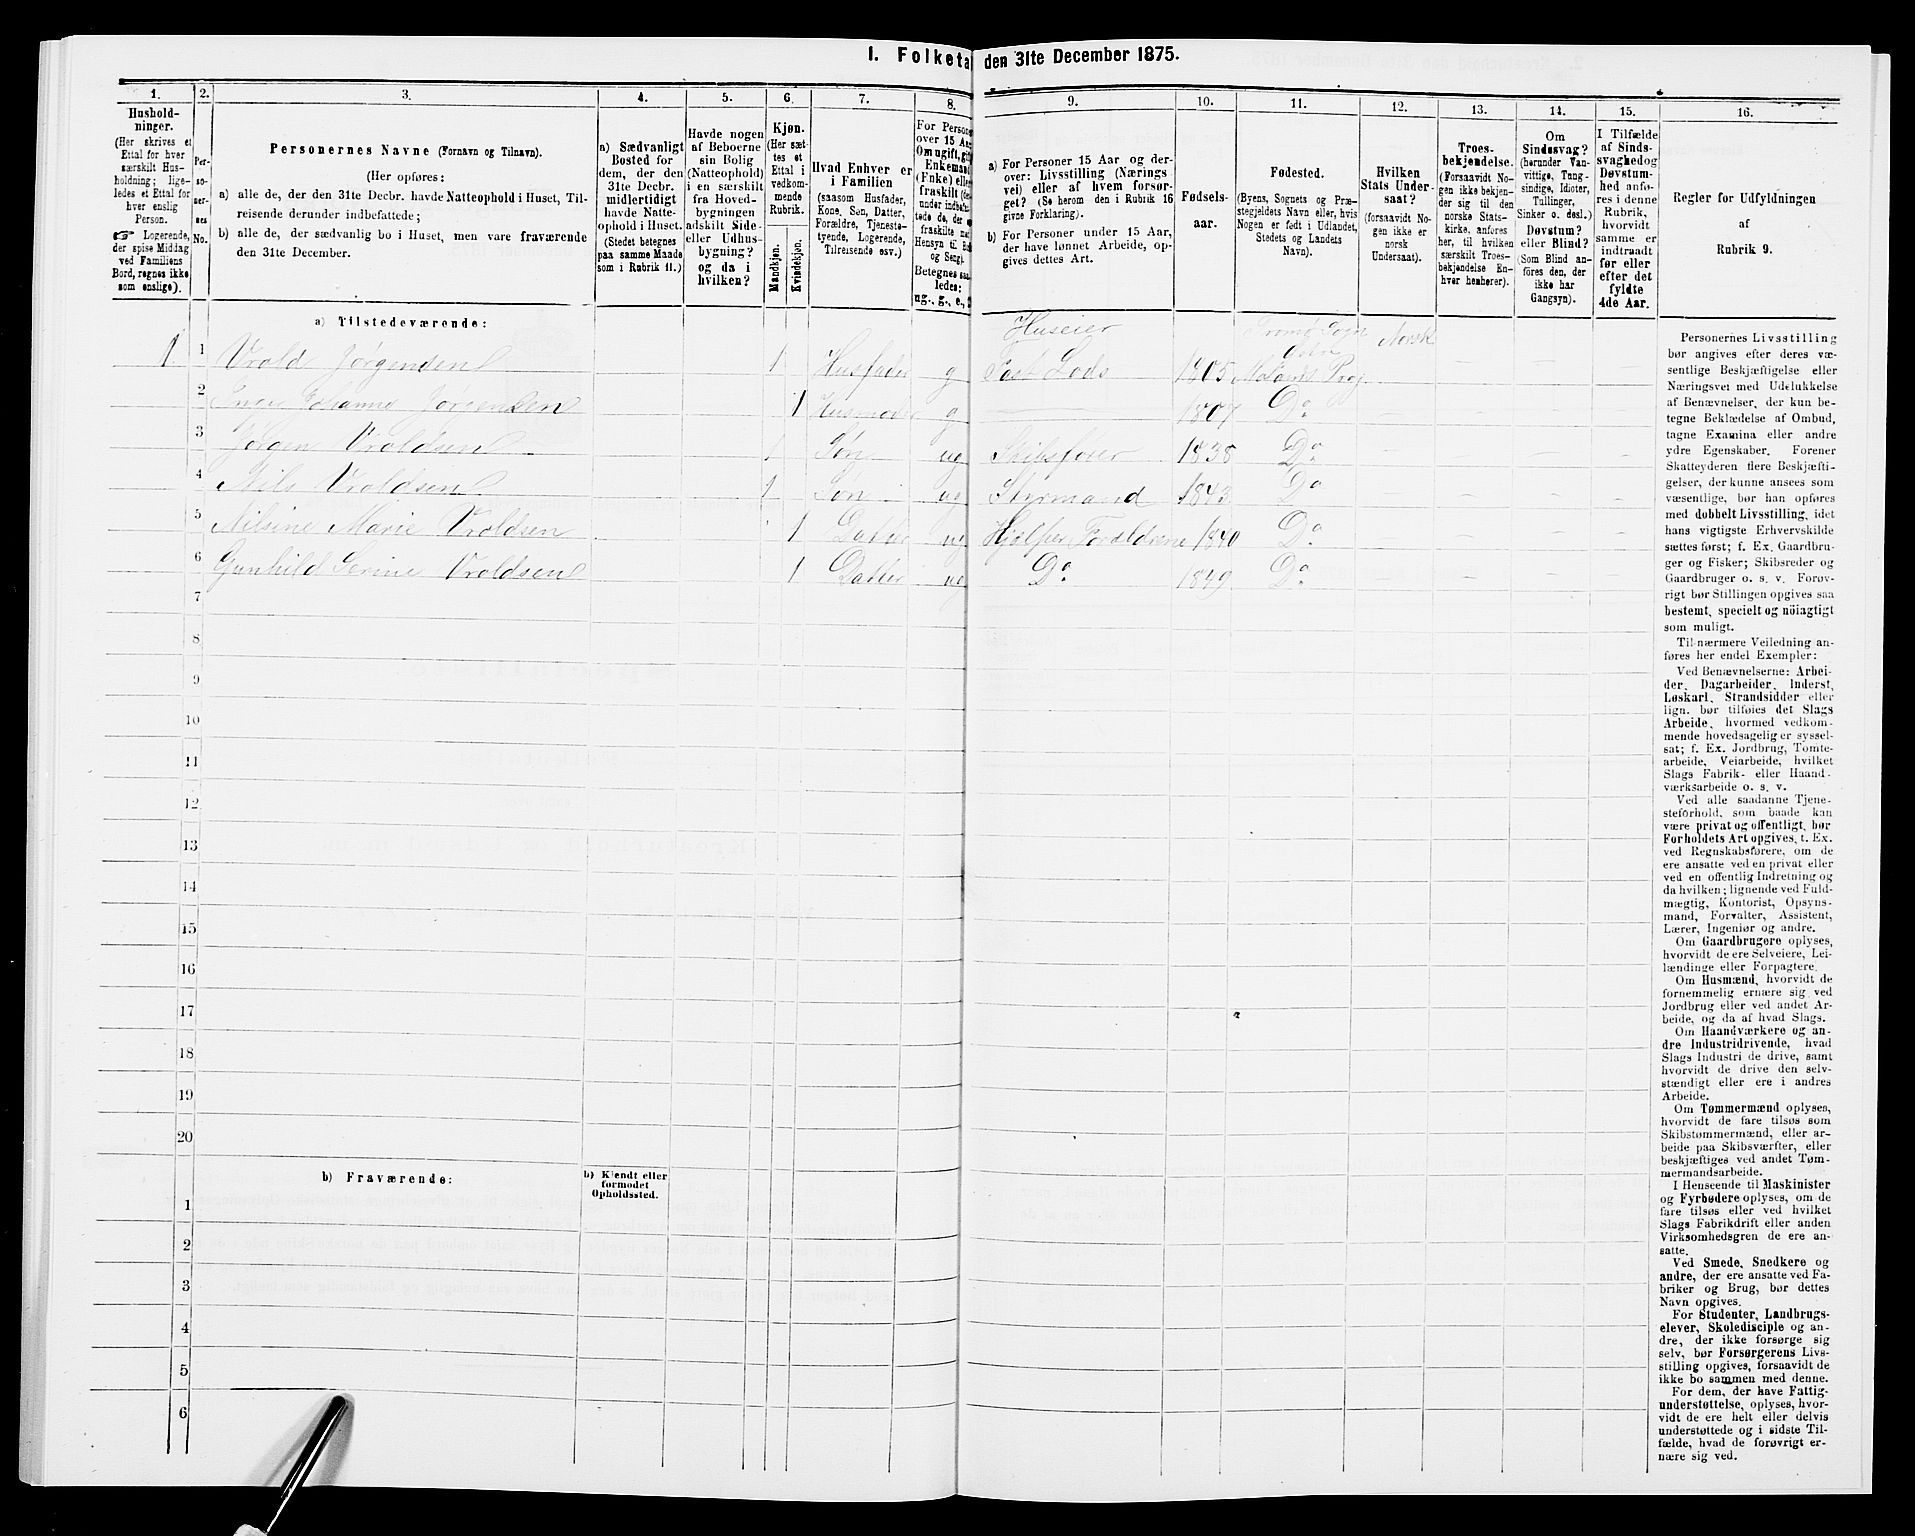 I. Folketa den 31te December 1875.
1. 2. 3. 4. 5. 6. 7. 8. 9. 10. 11. 12. 13. 14. 15. 16.
Hushold-
ninger.
(Her skrives et
Ettal for hver
særskilt Hus-
holdning; lige-
ledes et Ettal for
hver enslig
Person.
☞ Logerende,
der spise Middag
ved Familiens
Bord, regnes ikke
som enslige).
Per-
so-
ner-
nes
No.
Personernes Navne (Fornavn og Tilnavn).
(Her opføres:
a) alle de, der den 31te Decbr. havde Natteophold i Huset, Til-
reisende derunder indbefattede;
b) alle de, der sædvanlig bo i Huset, men vare fraværende
den 31te December.
a) Sædvanligt
Bosted for
dem, der den
31te Decbr.
midlertidigt
havde Natte-
ophold i Huset.
(Stedet betegnes
paa samme Maade
som i Rubrik 11.)
Havde nogen
af Beboerne
sin Bolig
(Natteophold)
i en særskilt
fra Hoved-
bygningen
adskilt Side-
eller Udhus-
bygning?
og da i
hvilken?
Kjøn.
(Her sæt-
tes et
Ettal i
vedkom-
mende
Rubrik.
Mandkjøn.
Kvindekjøn.
Hvad Enhver er
i Familien
(saasom Husfader,
Kone, Søn, Datter,
Forældre, Tjeneste-
tyende, Logerende,
Tilreisende osv.)
For Persone
over 15 Aa
Om ugift, gif
Enkemand
(Enke) elle
fraskilt (de
under indbefat-
tede de, der e
fraskilte me
Hensyn til Bo
og Seng).
Betegnes saa
ledes:
ug., g., e., f
a) For Personer 15 Aar og der-
over: Livsstilling (Nærings
vei) eller af hvem forsør-
get? (Se herom den i Rubrik 16
givne Forklaring).
b) For Personer under 15 Aar,
der have lønnet Arbeide, op-
gives dettes Art.
Fødsels-
aar.
Fødested.
(Byens, Sognets og Præ-
stegjeldets Navn eller, hvis
Nogen er født i Udlandet,
Stedets og Landets
Navn).
Hvilken
Stats Under-
saat?
(forsaavidt No-
gen ikke er
norsk
Undersaat).
Troes-
bekjendelse.
(Forsaavidt No-
gen ikke bekjen-
der sig til den
norske Stats-
kirke, anføres
her, til hvilken
særskilt Troes-
bekjendelse En-
hver henhører).
Om
Sindssvag?
(herunder Van-
vittige, Tung-
sindige, Idioter,
Tullinger,
Sinker o. desl.)
Døvstum?
eller Blind?
(Som Blind an-
føres den, der
ikke har
Gangsyn).
I Tilfælde
af Sinds-
svaghed og
Døvstum-
hed anfø-
res i denne
Rubrik,
hvorvidt
samme er
indtraadt
før eller
efter det
fyldte
4de Aar.
Regler for Udfyldningen
af
Rubrik 9.
a) Tilstedeværende:
Huseier Tromø Sogn
1 1 Vrold Jørgensen 1 Husfader g Fast Lods 1805 Norsk
2 Inger Johanne Jørgensen 1 Husmoder g 1807 Do
3 Jørgen Vroldsen 1 Søn ug Skibsfører 1838 Do
4 Nils Vroldsen 1 Søn ug Styrmand 1843 Do
5 Nilsine Marie Vroldsen 1 Datter ug Hjelper Forældrene 1840 Do
6 Gunhild Serine Vroldsen 1 Datter ug Do 1849 Do
7
8
9
10
11
12
13
14
15
16
17
18
19
20
b) Fraværende:
b) Kjendt eller
formodet
Opholdssted.
1
2
3
4
5
6
Personernes Livsstilling
bør angives efter deres væ-
sentlige Beskjæftigelse eller
Næringsvei med Udelukkelse
af Benævnelser, der kun be-
tegne Beklædelse af Ombud,
tagne Examina eller andre
ydre Egenskaber. Forener
Skatteyderen flere Beskjæfti-
gelser, der kunne ansees som
væsentlige, bør han opføres
med dobbelt Livsstilling, idet
hans vigtigste Erhvervskilde
sættes først; f. Ex. Gaardbru-
ger og Fisker; Skibsreder og
Gaardbruger o. s. v. Forøv-
rigt bør Stillingen opgives saa
bestemt, specielt og nöiagtigt
som muligt.
Til nærmere Veiledning an-
føres her endel Exempler:
Ved Benævnelserne: Arbei-
der, Dagarbeider, Inderst,
Løskarl, Strandsidder eller
lign. bør tilføies det Slags
Arbeide, hvormed vedkom-
mende hovedsagelig er syssel-
sat; f. Ex. Jordbrug, Tomte-
arbeide, Veiarbeide, hvilket
Slags Fabrik- eller Haand-
værksarbeide o. s. v.
Ved alle saadanne Tjene-
steforhold, som baade kan
være privat og offentligt, bør
Forholdets Art opgives, t. Ex.
ved Regnskabsførere, om de
ere ansatte ved en privat eller
ved en offentlig Indretning og
da hvilken; lignende ved Fuld-
mægtig, Kontorist, Opsyns-
mand, Forvalter, Assistent,
Lærer, Ingeniør og andre.
Om Gaardbrugere oplyses,
hvorvidt de ere Selveiere, Lei-
lændinge eller Forpagtere.
Om Husmænd, hvorvidt de
fornemmelig ernære sig ved
Jordbrug eller ved andet Ar-
beide, og da af hvad Slags.
Om Haandværkere og an-
dre Industridrivende, hvad
Slags Industri de drive, samt
hvorvidt de drive den selv-
stændigt eller ere i andres
Arbeide.
Om Tømmermænd oplyses,
hvorvidt de fare tilsøs som
Skibstømmermænd, eller ar-
beide paa Skibsværfter, eller
beskjæftiges ved andet Tøm-
mermandsarbeide.
I Henseende til Maskinister
og Fyrbødere oplyses, om de
fare tilsøs eller ved hvilket
Slags Fabrikdrift eller anden
Virksomhedsgren de ere an-
satte.
Ved Smede, Snedkere og
andre, der ere ansatte ved Fa-
briker og Brug, bør dettes
Navn opgives.
For Studenter, Landbrugs-
elever, Skoledisciple og an-
dre, der ikke forsørge sig
selv, bør Forsørgerens Livs-
stilling opgives, forsaavidt de
ikke bo sammen med denne.
For dem, der have Fattig-
understøttelse, oplyses, hvor-
vidt de ere helt eller delvis
understøttede og i sidste Til-
fælde, hvad de forøvrigt er-
nære sig ved.